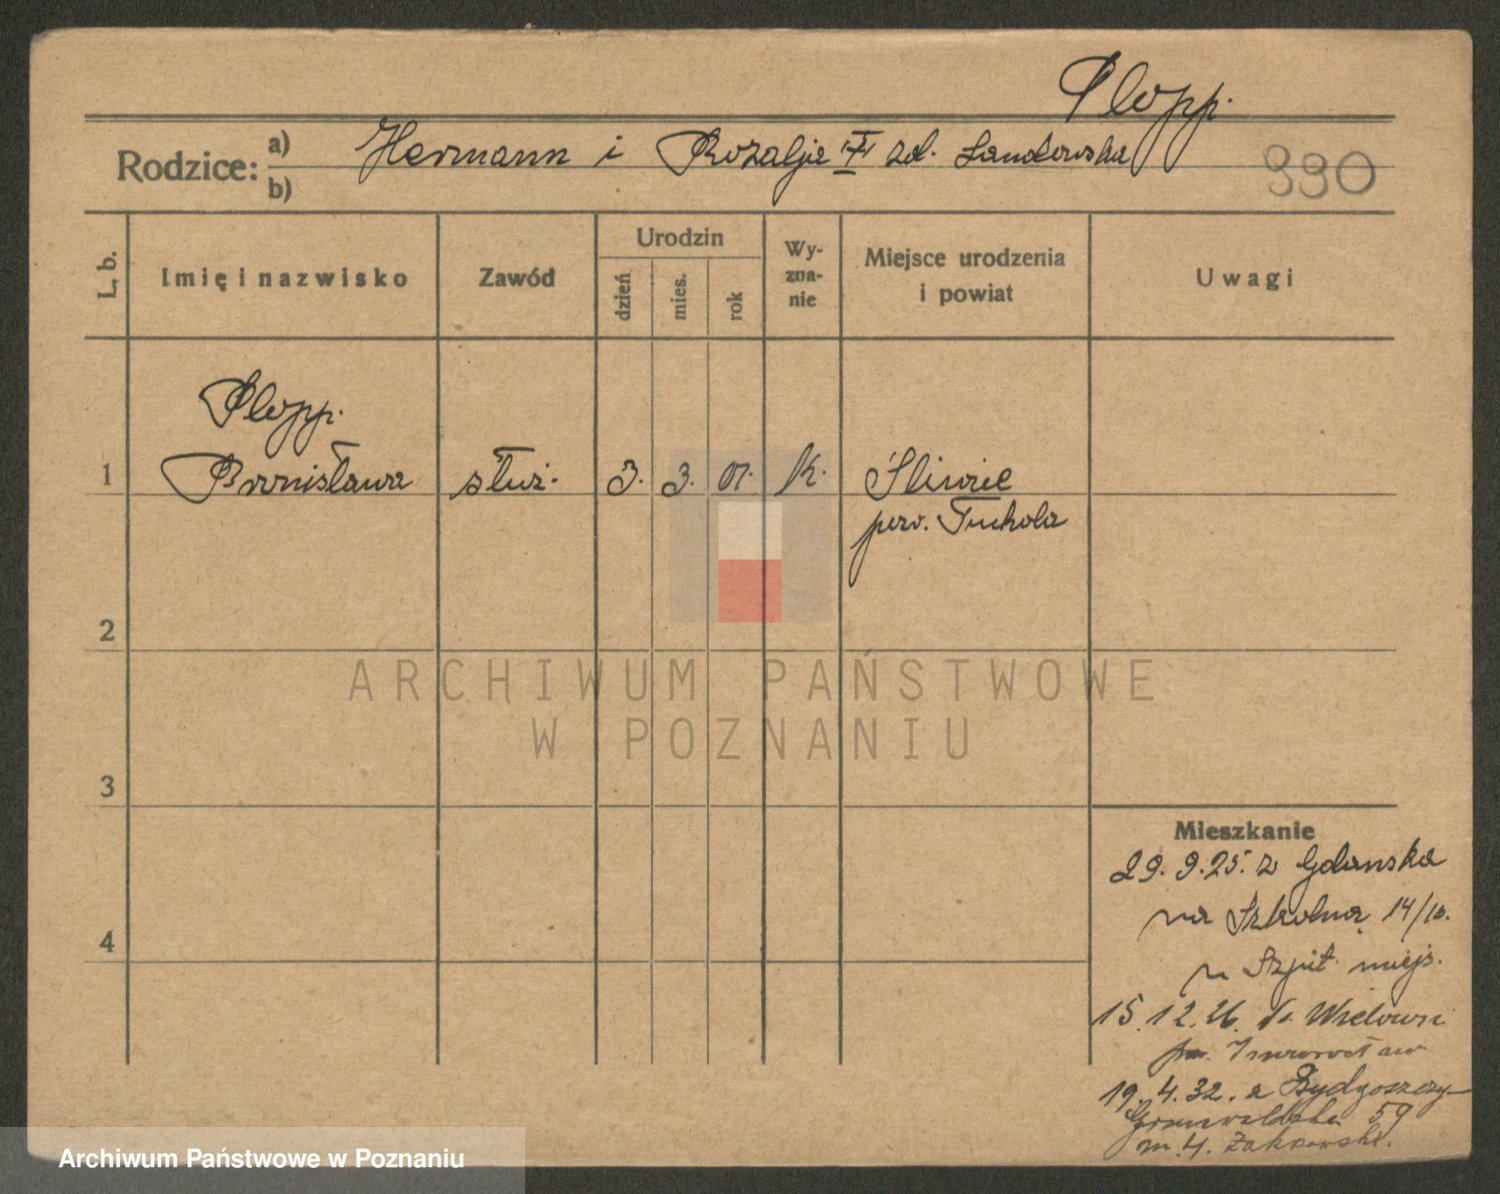 Plopp.
Rodzice: a) Hermann i Rozalja zd. Landowska
b)
990
L. b.
Imię i nazwisko
Zawód
Urodzin
dzień
mies.
rok
Wy-
zna-
nie
Miejsce urodzenia
i powiat
Uwagi
Plopp.
1 Bronisława służ. 3. 3. 01. k. Śliwice
pow. Tuchola
2
3
4
ARCHIWUM PAŃSTWOWE
W POZNANIU
Mieszkanie
29.9.25. z Gdańska
na Szkolną 14/10.
u Szpit. miejs.
15.12.26. do
pow. Inowrocław
19.4.32. z Bydgoszczy
Grunwaldzka 59
m. 4.
Archiwum Państwowe w Poznaniu